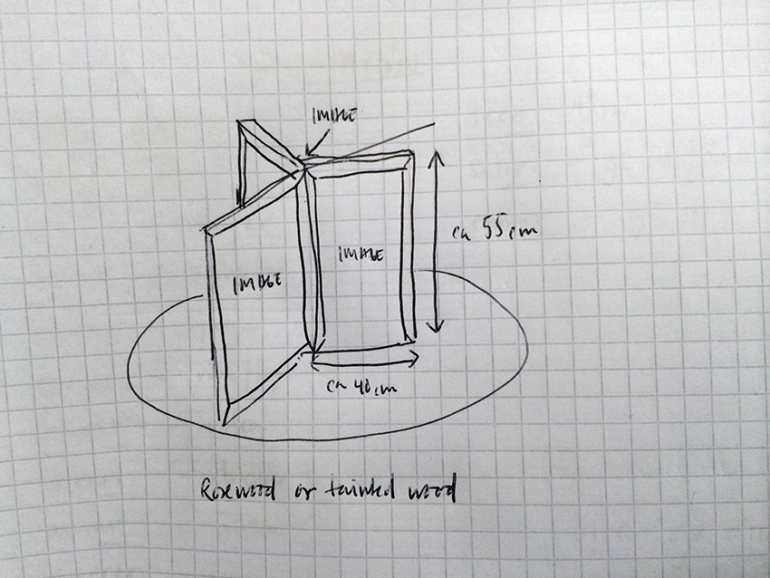 IMAGE
ca 55 cm
IMAGE
IMAGE
ca 40 cm
Rosewood or tainted wood